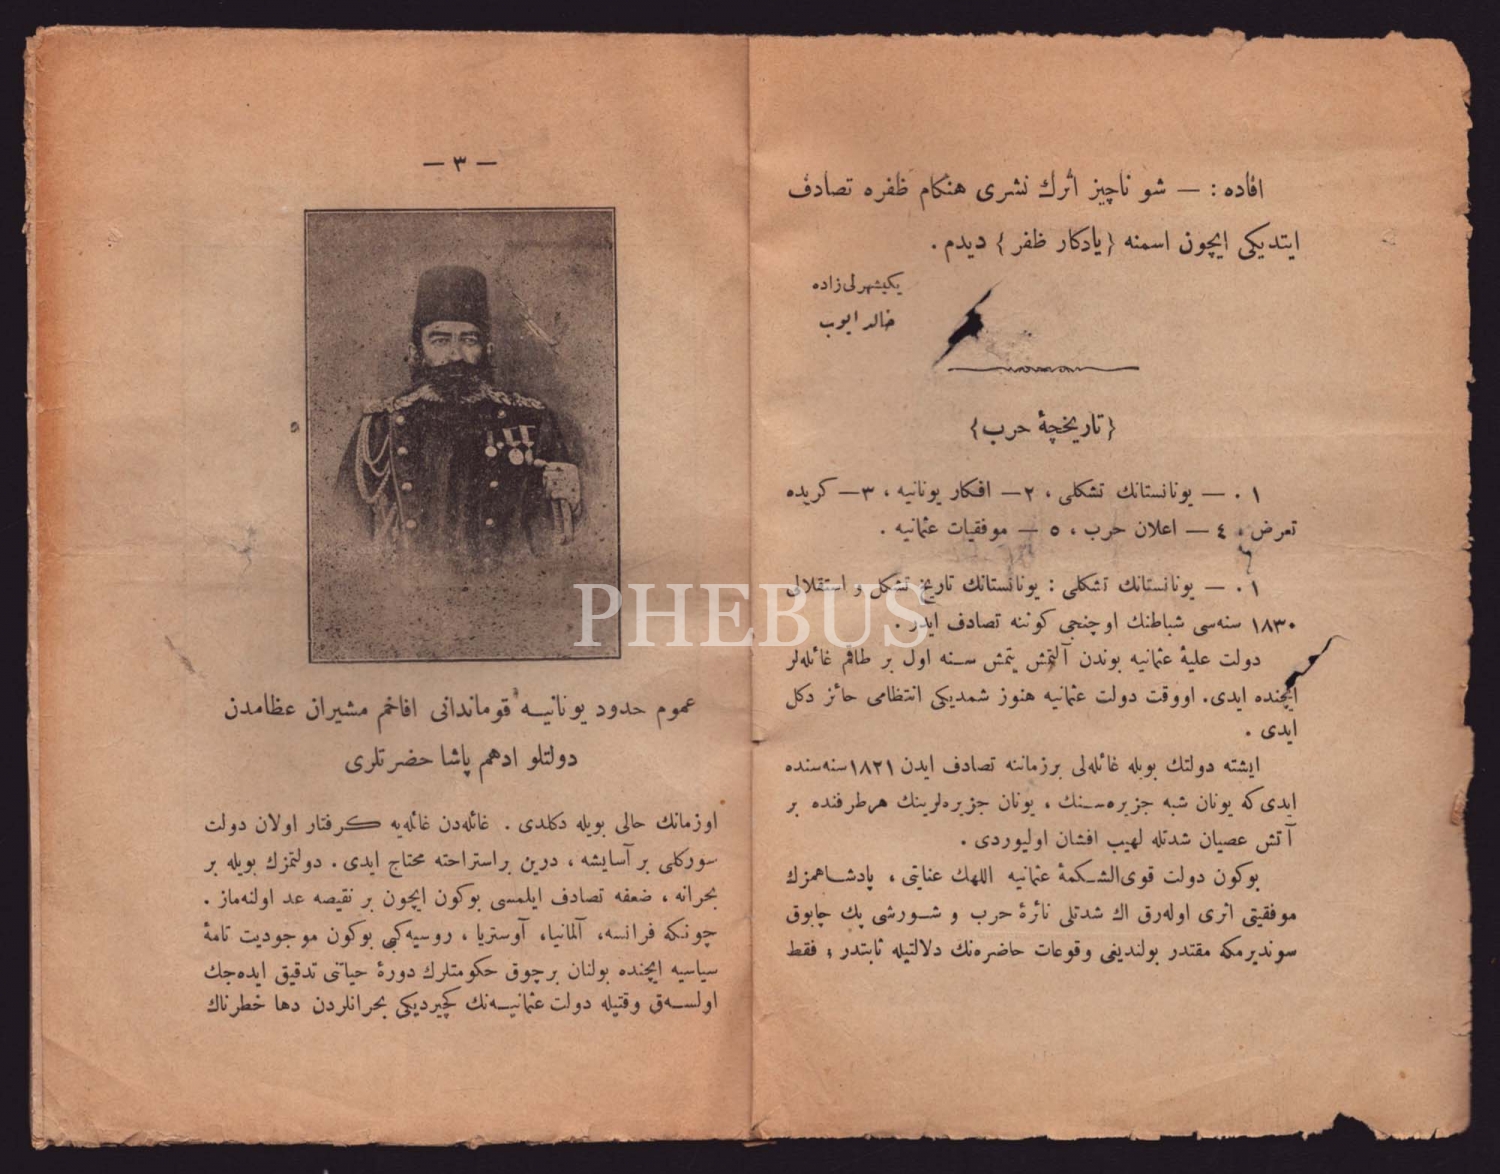 افاده : — شو ناچیز اثرك نشری هنكام ظفره تصادف
ایتدیكی ایچون اسمنه {یادكار ظفر} دیدم .
یكیشهرلی‌زاده
خالد ایوب
{تاریخچهٔ حرب}
۰۱ — یونانستانك تشكلی ، ۲— افكار یونانیه ، ۳— كریده
تعرض ، ٤ — اعلان حرب ، ٥ — موفقیات عثمانیه .
۰۱ — یونانستانك تشكلی : یونانستانك تاریخ تشكل و استقلالی
۱۸۳۰ سنه‌سی شباطنك اوچنجی كوننه تصادف ایدر .
دولت علیهٔ عثمانیه بوندن آلتمش یتمش سنه اول بر طاقم غائله‌لر
ایچنده ایدی. اووقت دولت عثمانیه هنوز شمدیكی انتظامی حائز دكل
ایدی .
ایشته دولتك بویله غائله‌لی برزماننه تصادف ایدن ۱۸۲۱سنه‌سنده
ایدی‌كه یونان شبه جزیره‌سنك ، یونان جزیره‌لرینك هرطرفنده بر
آتش عصیان شدتله لهیب افشان اولیوردی .
بوكون دولت قوی‌الشكمهٔ عثمانیه اللهك عنایتی ، پادشاهمزك
موفقیتی اثری اوله‌رق اك شدتلی نائرهٔ حرب و شورشی پك چابوق
سوندیرمكه مقتدر بولندیغی وقوعات حاضره‌نك دلالتیله ثابتدر ؛ فقط
— ۳ —
عموم حدود یونانیه قوماندانی افاخم مشیران عظامدن
دولتلو ادهم پاشا حضرتلری
اوزمانك حالی بویله دكلدی . غائله‌دن غائله‌یه كرفتار اولان دولت
سوركلی بر آسایشه ، درین براستراحته محتاج ایدی . دولتمزك بویله بر
بحرانه ، ضعفه تصادف ایلمسی بوكون ایچون بر نقیصه عد اولنه‌ماز .
چونكه فرانسه، آلمانیا، آوستریا ، روسیه‌كبی بوكون موجودیت تامهٔ
سیاسیه ایچنده بولنان برچوق حكومتلرك دورهٔ حیاتنی تدقیق ایده‌جك
اولسه‌ق وقتیله دولت عثمانیه‌نك كچیردیكی بحرانلردن دها خطرناك
PHEBUS